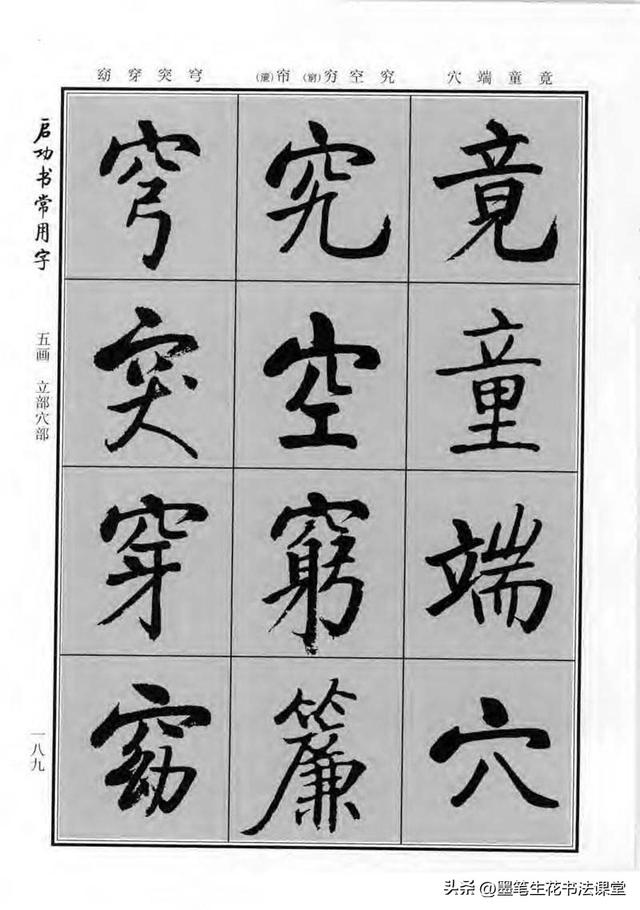 竟童端穴
究空穷(窮)帘(簾)
穹突穿窈
竟童端穴
究空窮簾
穹突穿窈
启功书常用字
五画 立部穴部
一八九
头条 @墨笔生花书法课堂